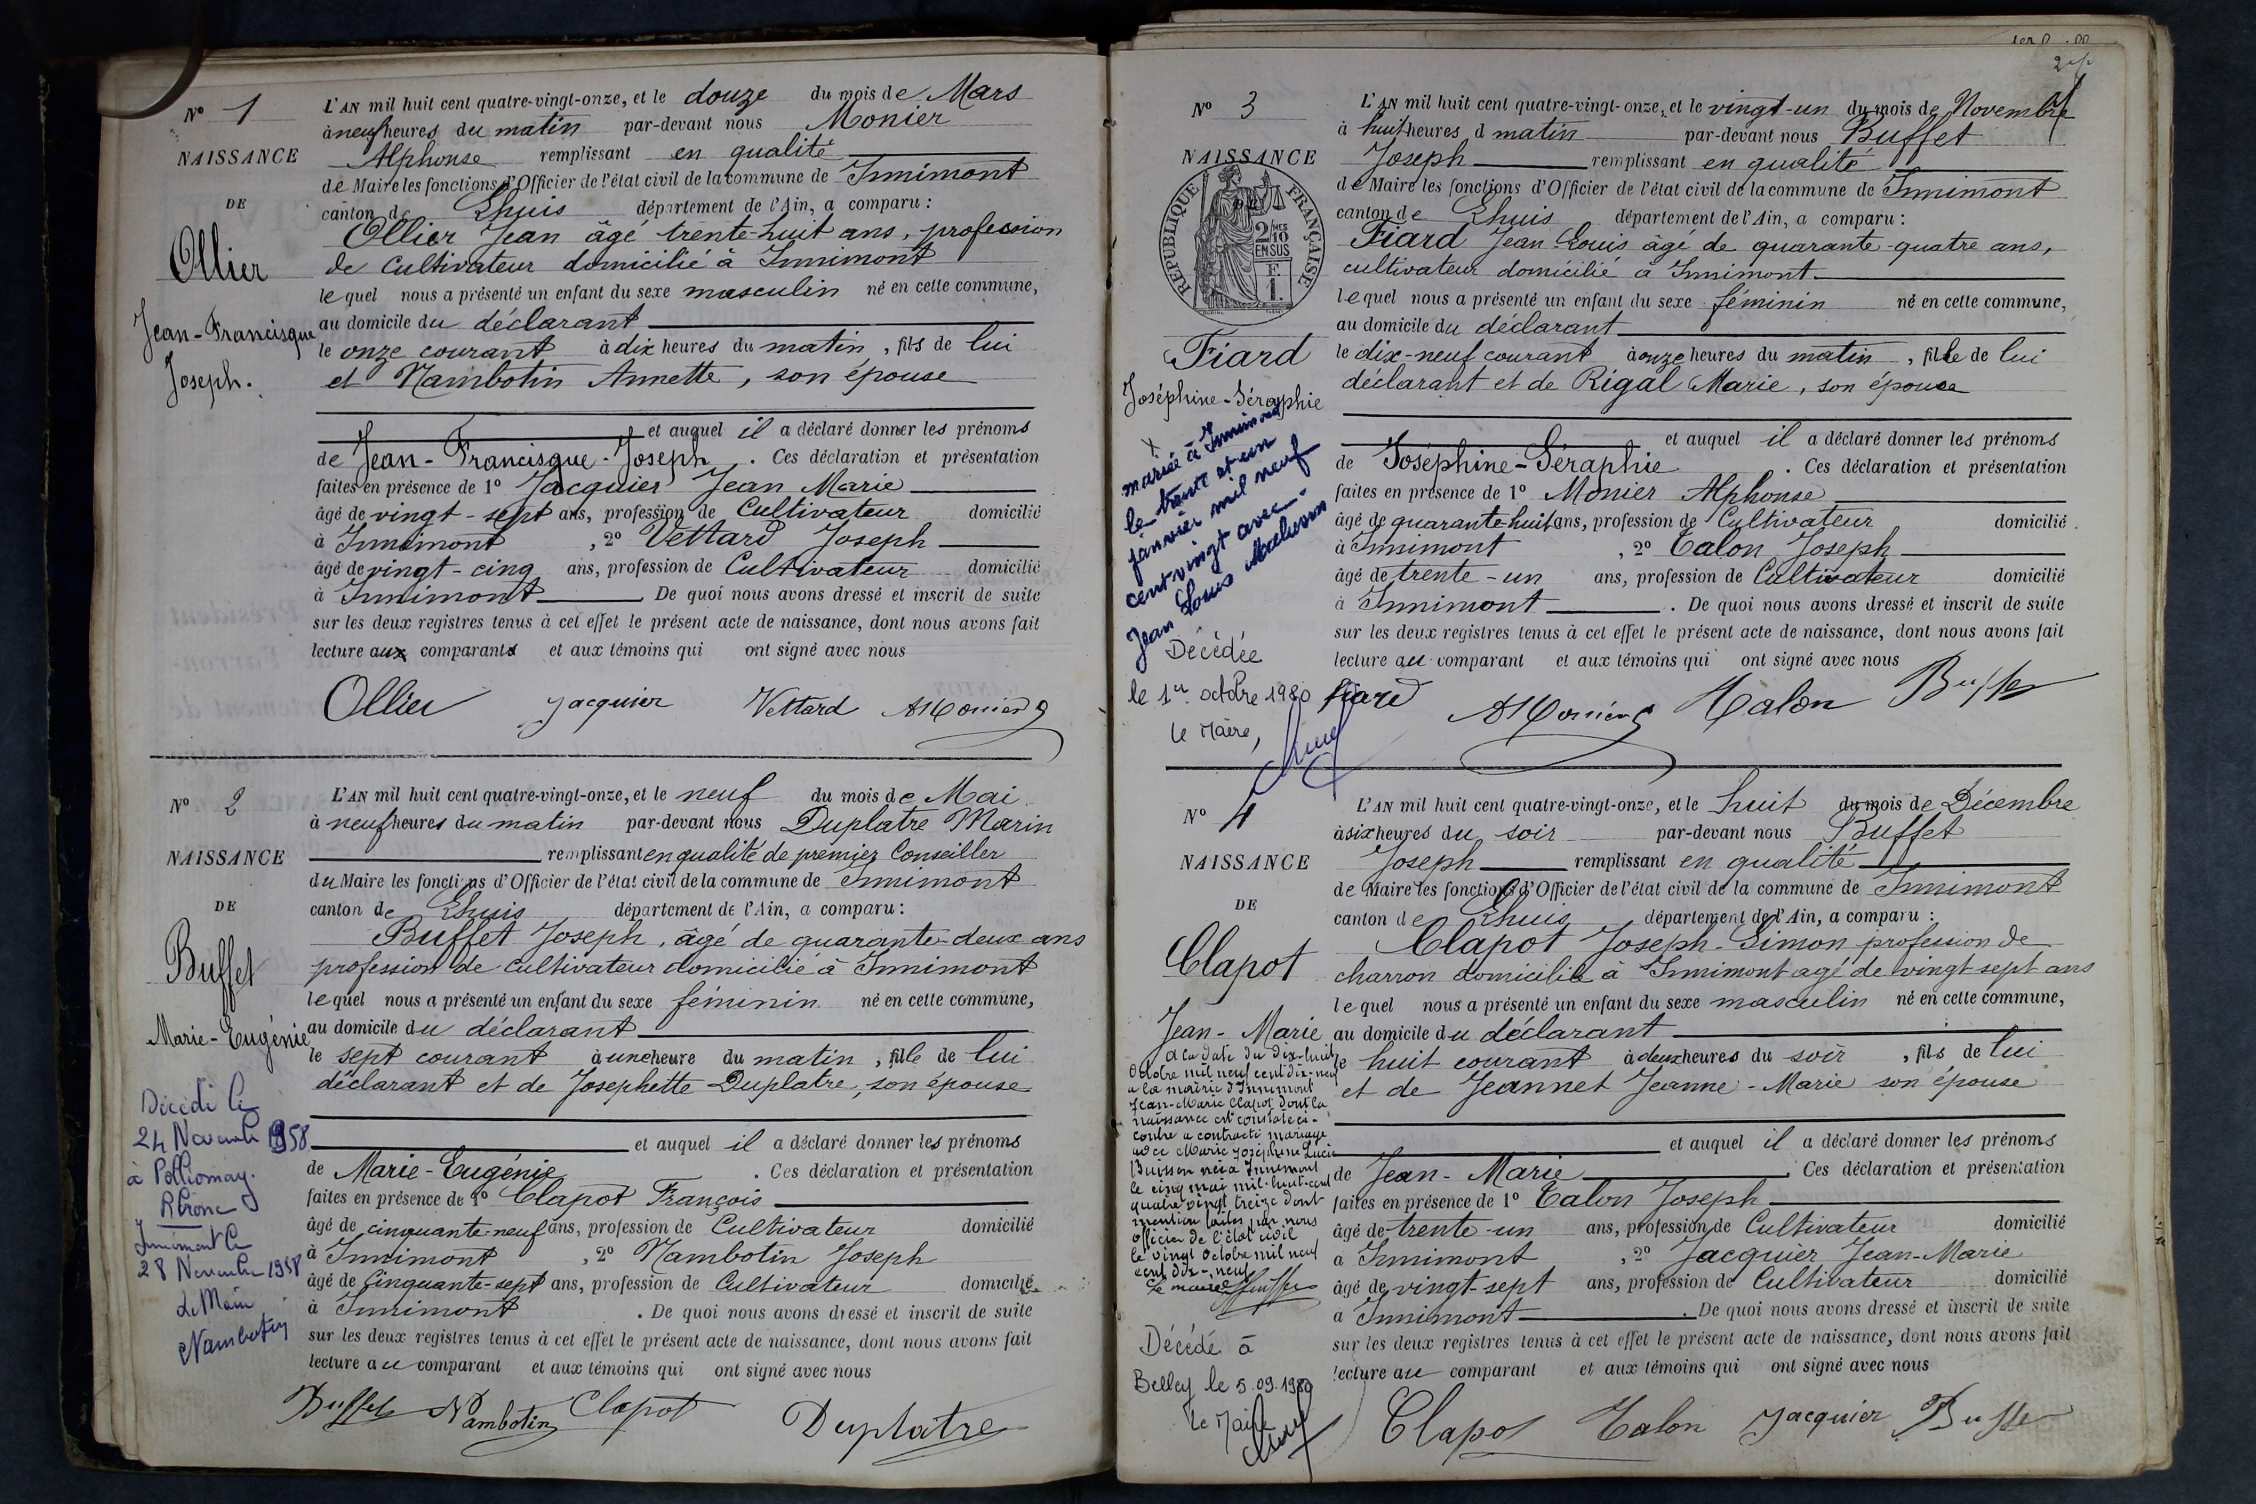 N° 1
NAISSANCE
DE
Ollier
Jean-Francisque
Joseph.
L'AN mil huit cent quatre-vingt-onze, et le douze du mois de Mars
à neuf heures du matin par-devant nous Monier
Alphonse remplissant en qualité
de Maire les fonctions d'Officier de l'état civil de la commune de Innimont
canton de Lhuis département de l'Ain, a comparu :
Ollier Jean âgé trente-huit ans, profession
de Cultivateur domicilié à Innimont
lequel nous a présenté un enfant du sexe masculin né en cette commune,
au domicile du déclarant
le onze courant à dix heures du matin, fils de lui
et Nambotin Annette, son épouse
et auquel il a déclaré donner les prénoms
de Jean-Francisque-Joseph. Ces déclaration et présentation
faites en présence de 1° Jacquier Jean Marie
âgé de vingt-sept ans, profession de Cultivateur domicilié
à Innimont, 2° Vettard Joseph
âgé de vingt-cinq ans, profession de Cultivateur domicilié
à Innimont. De quoi nous avons dressé et inscrit de suite
sur les deux registres tenus à cet effet le présent acte de naissance, dont nous avons fait
lecture aux comparants et aux témoins qui ont signé avec nous
Ollier Jacquier Vettard A Monier
N° 2
NAISSANCE
DE
Buffet
Marie-Eugénie
Décédé le
24 Novembre 1958
à Polliomay.
Rhône
Innimont le
28 Novembre 1958
Le Maire
Nambotin
L'AN mil huit cent quatre-vingt-onze, et le neuf du mois de Mai
à neuf heures du matin par-devant nous Duplatre Marin
remplissant en qualité de premier Conseiller
du Maire les fonctions d'Officier de l'état civil de la commune de Innimont
canton de Lhuis département de l'Ain, a comparu :
Buffet Joseph, âgé de quarante-deux ans
profession de cultivateur domicilié à Innimont
lequel nous a présenté un enfant du sexe féminin né en cette commune,
au domicile du déclarant
le sept courant à une heure du matin, fille de lui
déclarant et de Josephette Duplatre, son épouse
et auquel il a déclaré donner les prénoms
de Marie-Eugénie. Ces déclaration et présentation
faites en présence de 1° Clapot François
âgé de cinquante-neuf ans, profession de Cultivateur domicilié
à Innimont, 2° Nambotin Joseph
âgé de Cinquante-sept ans, profession de Cultivateur domicilié
à Innimont. De quoi nous avons dressé et inscrit de suite
sur les deux registres tenus à cet effet le présent acte de naissance, dont nous avons fait
lecture au comparant et aux témoins qui ont signé avec nous
Buffet Nambotin Clapot Duplatre
N° 3
NAISSANCE
REPUBLIQUE FRANÇAISE
2/10 EN SUS
F. 1.
Fiard
Joséphine-Séraphie
mariée à Innimont
le trente et un
janvier mil neuf
cent vingt avec
Jean Louis
Décédée
le 1er octobre 1980
Le Maire,
L'AN mil huit cent quatre-vingt-onze, et le vingt-un du mois de Novembre
à huit heures d matin par-devant nous Buffet
Joseph remplissant en qualité
de Maire les fonctions d'Officier de l'état civil de la commune de Innimont
canton de Lhuis département de l'Ain, a comparu :
Fiard Jean Louis âgé de quarante-quatre ans,
cultivateur domicilié à Innimont
lequel nous a présenté un enfant du sexe féminin né en cette commune,
au domicile du déclarant
le dix-neuf courant à onze heures du matin, fille de lui
déclarant et de Rigal Marie, son épouse
et auquel il a déclaré donner les prénoms
de Joséphine-Séraphie. Ces déclaration et présentation
faites en présence de 1° Monier Alphonse
âgé de quarante-huit ans, profession de Cultivateur domicilié
à Innimont, 2° Talon Joseph
âgé de trente-un ans, profession de Cultivateur domicilié
à Innimont. De quoi nous avons dressé et inscrit de suite
sur les deux registres tenus à cet effet le présent acte de naissance, dont nous avons fait
lecture au comparant et aux témoins qui ont signé avec nous
Fiard A Monier Talon Buffet
N° 4
NAISSANCE
DE
Clapot
Jean-Marie
A la date du dix-huit
Octobre mil neuf cent dix-neuf
a la mairie d'Innimont
Jean-Marie Clapot dont la
naissance est constatée ci-
contre a contracté mariage
avec Marie Joséphine Lucie
Buisson née à Innimont
le cinq mai mil-huit-cent
quatre vingt treize dont
mention faites par nous
Officier de l'état civil
le vingt Octobre mil neuf
cent dix-neuf
Le maire
Décédé à
Belley le 5.09.1980
Le Maire
L'AN mil huit cent quatre-vingt-onze, et le huit du mois de Décembre
à six heures du soir par-devant nous Buffet
Joseph remplissant en qualité
de Maire les fonctions d'Officier de l'état civil de la commune de Innimont
canton de Lhuis département de l'Ain, a comparu :
Clapot Joseph-Simon profession de
charron domicilié à Innimont agé de vingt sept ans
lequel nous a présenté un enfant du sexe masculin né en cette commune,
au domicile du déclarant
le huit courant à deux heures du soir, fils de lui
et de Jeannet Jeanne-Marie son épouse
et auquel il a déclaré donner les prénoms
de Jean-Marie. Ces déclaration et présentation
faites en présence de 1° Talon Joseph
âgé de trente-un ans, profession de Cultivateur domicilié
à Innimont, 2° Jacquier Jean-Marie
âgé de vingt-sept ans, profession de Cultivateur domicilié
à Innimont. De quoi nous avons dressé et inscrit de suite
sur les deux registres tenus à cet effet le présent acte de naissance, dont nous avons fait
lecture au comparant et aux témoins qui ont signé avec nous
Clapot Talon Jacquier Buffet